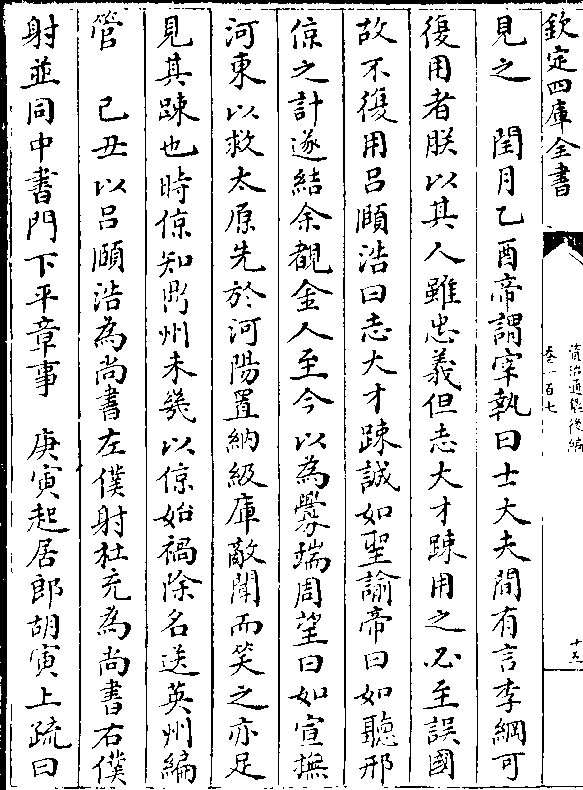 欽定四庫全書
資治通鑑後編
卷一百七
十九
見之　閏月乙酉帝謂宰執曰士大夫間有言李綱可
復用者朕以其人雖忠義但志大才踈用之必至誤國
故不復用呂頤浩曰志大才踈誠如聖諭帝曰如聽邢
倞之計遂結余覩金人至今以為釁端周望曰如宣撫
河東以救太原先於河陽置納級庫敵聞而笑之亦足
見其踈也時倞知鬲州未幾以倞始禍除名送英州編
管　己丑以呂頤浩為尚書左僕射杜充為尚書右僕
射並同中書門下平章事　庚寅起居郎胡寅上疏曰